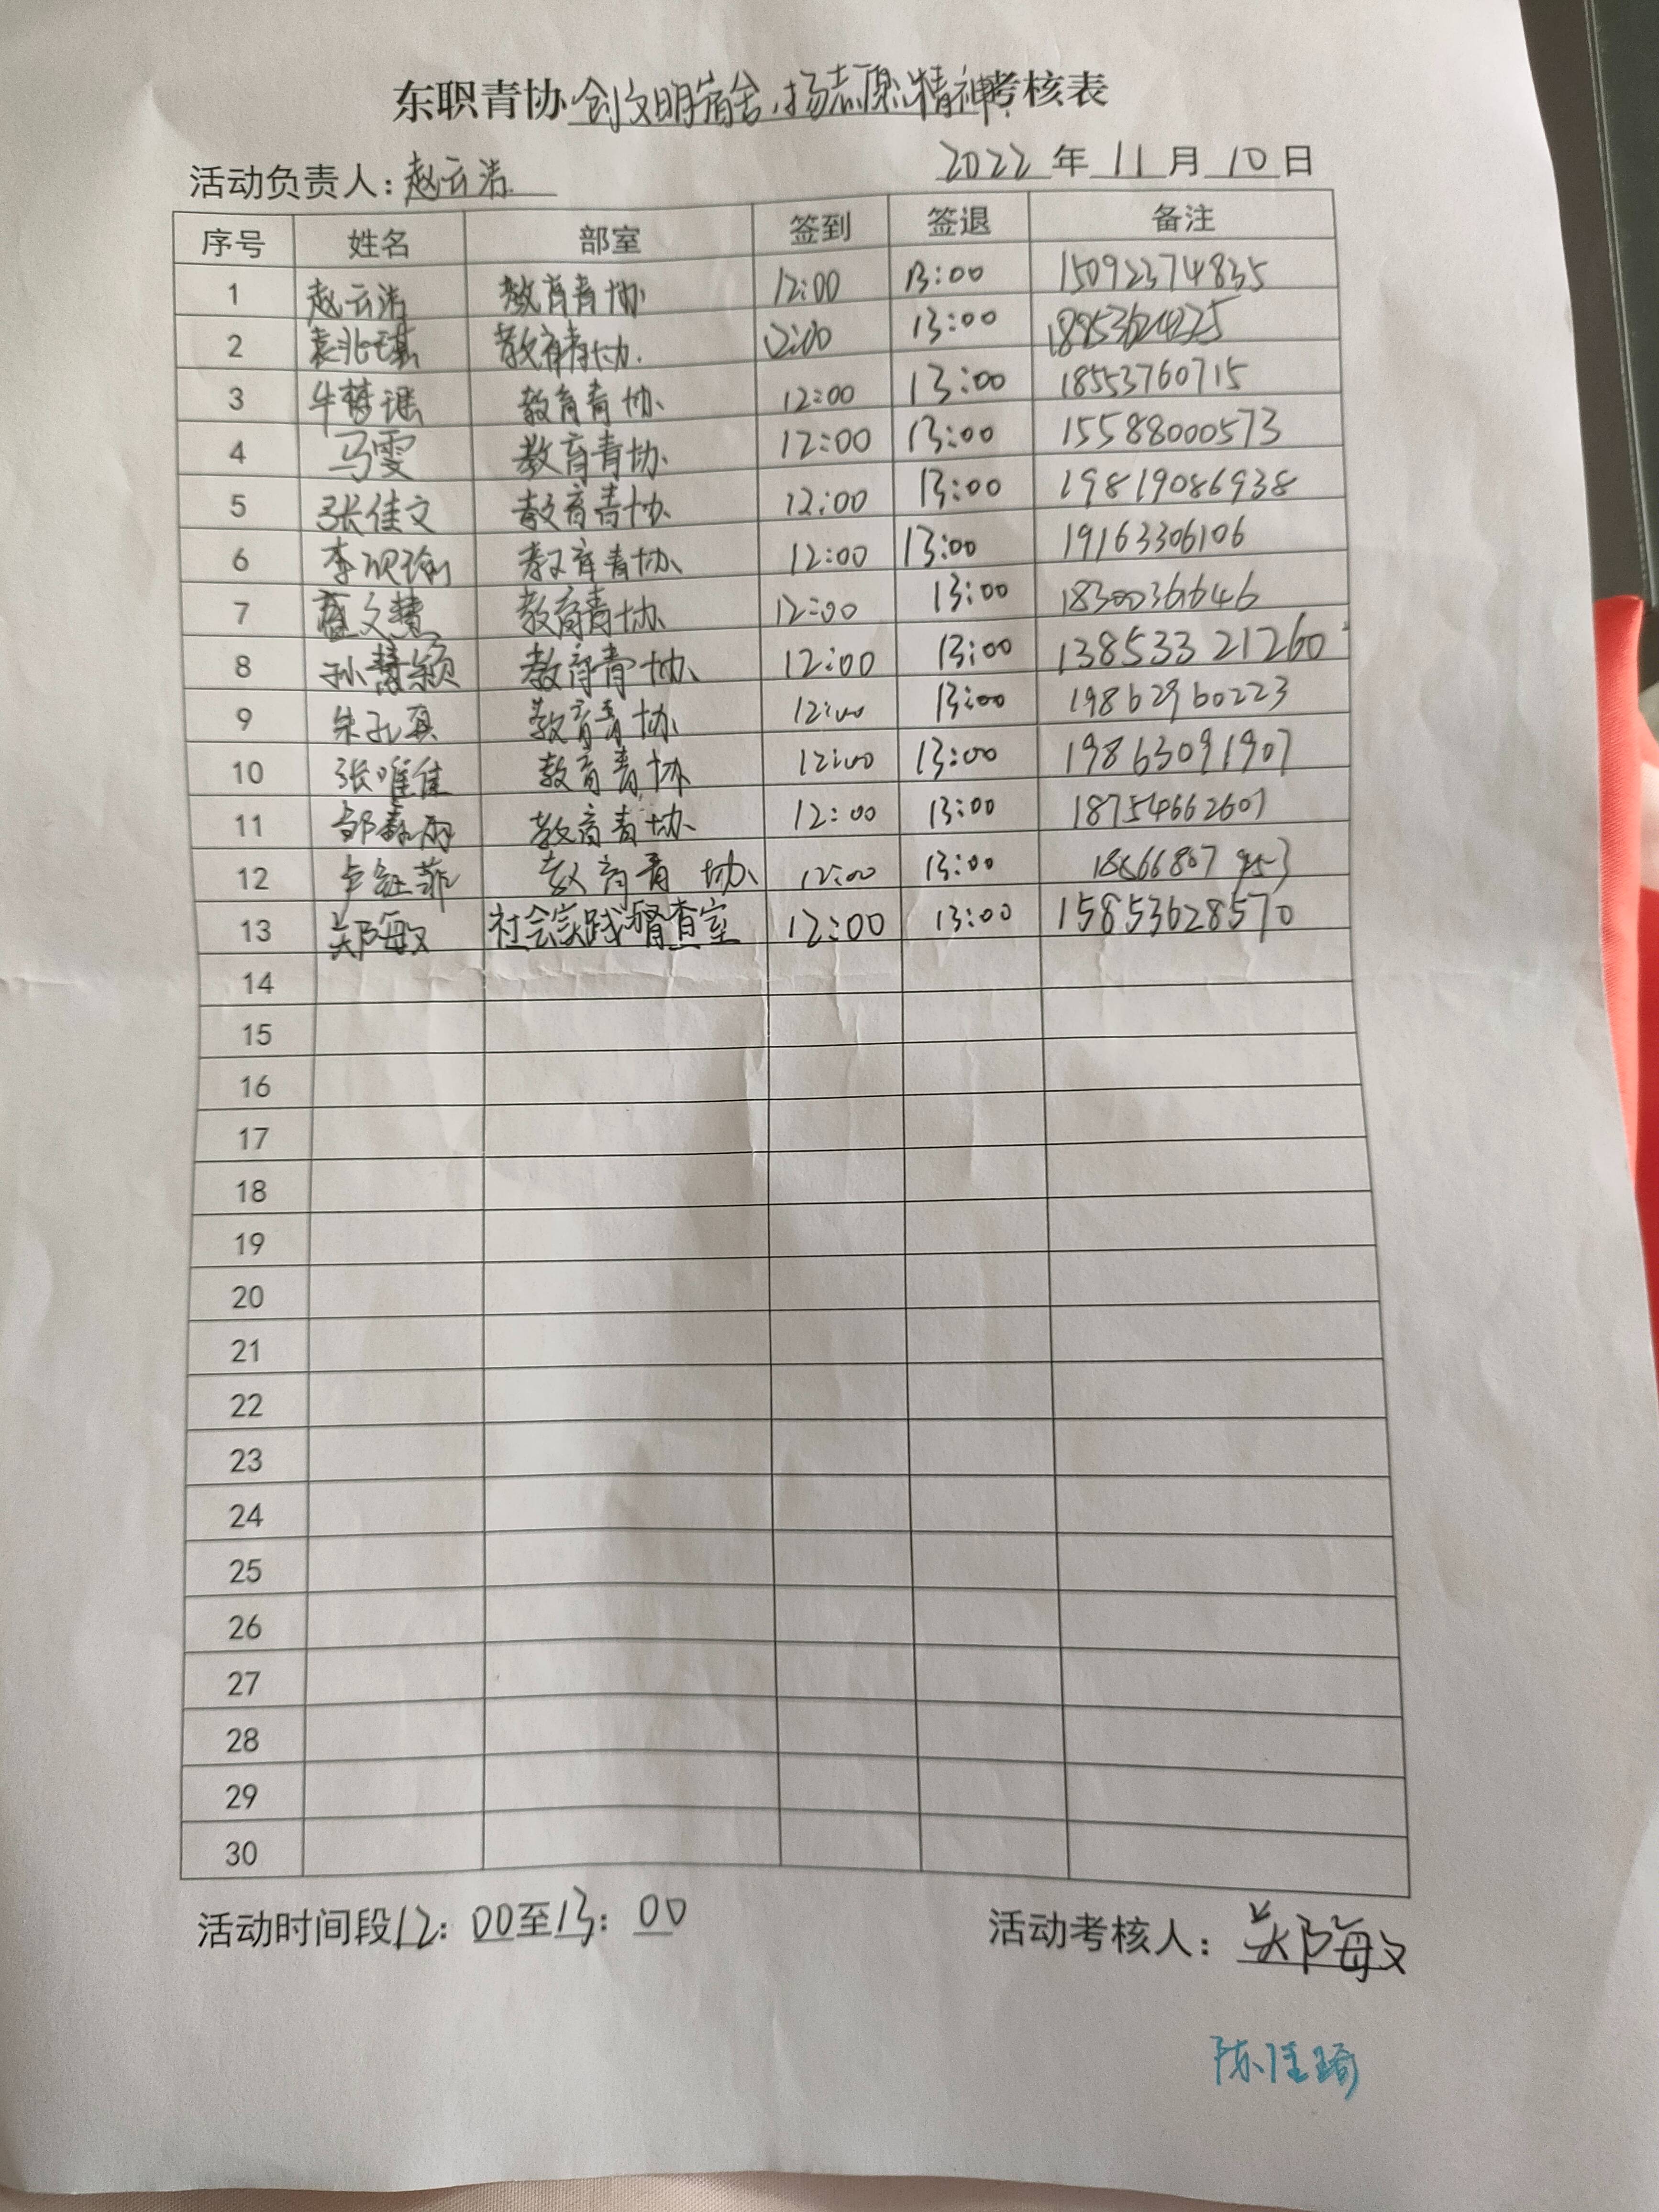 东职青协创文明宿舍,扬志愿精神考核表
活动负责人:赵云浩 2022年11月10日
序号 姓名 部室 签到 签退 备注
1 赵云浩 教育青协 12:00 13:00 15092374835
2 袁兆琪 教育青协 12:00 13:00
3 牛梦瑶 教育青协 12:00 13:00 18553760715
4 马雯 教育青协 12:00 13:00 15588000573
5 张佳文 教育青协 12:00 13:00 19819086938
6 教育青协 12:00 13:00 19163306106
7 教育青协 12:00 13:00 18300361646
8 孙慧颖 教育青协 12:00 13:00 13853321260
9 教育青协 12:00 13:00 19862960223
10 张唯佳 教育青协 12:00 13:00 19863091907
11 教育青协 12:00 13:00 18754662607
12 教育青协 12:00 13:00
13 郑海文 社会实践督查室 12:00 13:00 15853628570
14
15
16
17
18
19
20
21
22
23
24
25
26
27
28
29
30
活动时间段12:00至13:00 活动考核人:
陈佳琦